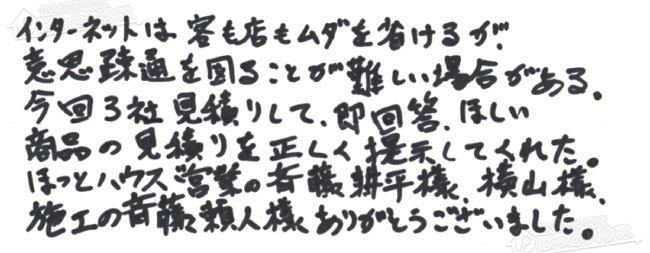 インターネットは客も店もムダを省けるが、
意思疎通を図ることが難しい場合がある。
今回3社見積りして、即回答、ほしい
商品の見積りを正しく提示してくれた。
ほっとハウス営業の斉藤耕平様、横山様、
施工の斉藤頼人様ありがとうございました。